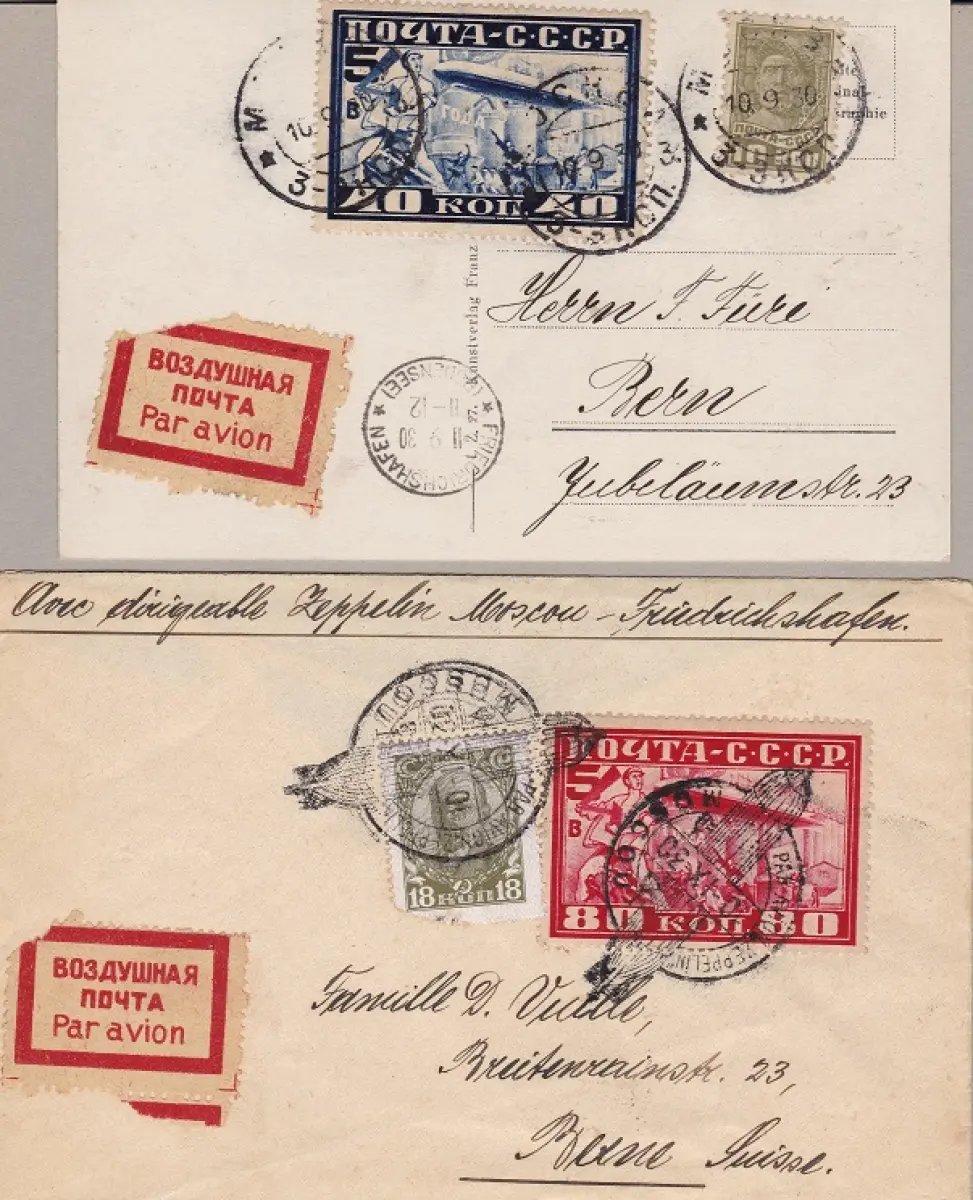 ПОЧТА-С.С.С.Р.
5
В
ГОДА
40 КОП 40
М
10.9.30
10.9.30
10.9.30
ПОЧТА-СССР
Kunstverlag Franz
Herrn F. Füri
Bern
Jubiläumstr. 23
ВОЗДУШНАЯ
ПОЧТА
Par avion
FRIEDRICHSHAFEN
(BODENSEE)
11 9 30
11-12
Avec dirigeable Zeppelin Moscou - Friedrichshafen.
MOSCOU
18 КОП 18
ПОЧТА-С.С.С.Р.
5
В
80 КОП 80
MOSCOU
ZEPPELIN
ВОЗДУШНАЯ
ПОЧТА
Par avion
Famille D.
Breitenrainstr. 23,
Berne Suisse.